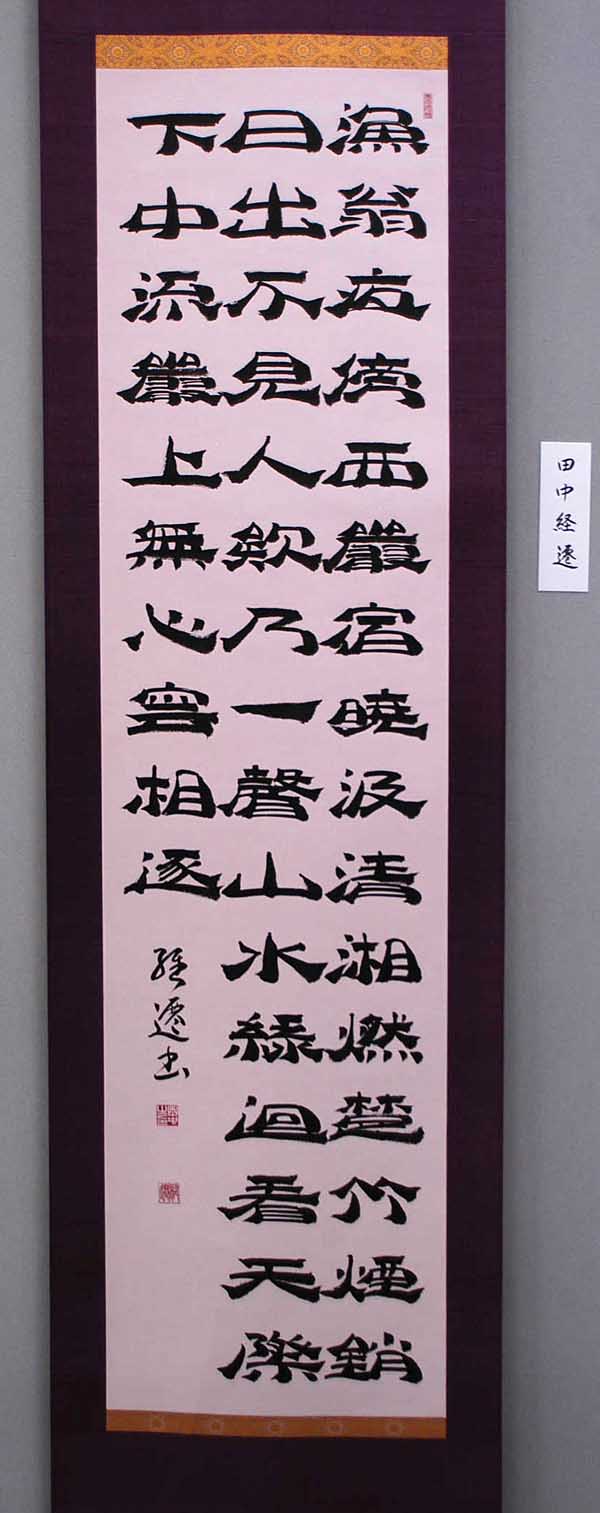 漁翁夜傍西巖宿曉汲清湘燃楚竹煙銷
日出不見人欸乃一聲山水綠迴看天際
下中流巖上無心雲相逐
経遷書
田中経遷